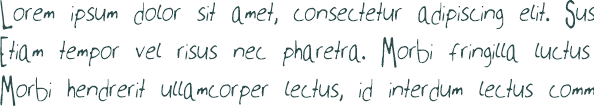 Lorem ipsum dolor sit amet, consectetur adipiscing elit. Sus
Etiam tempor vel risus nec pharetra. Morbi fringilla luctus
Morbi hendrerit ullamcorper lectus, id interdum lectus comm